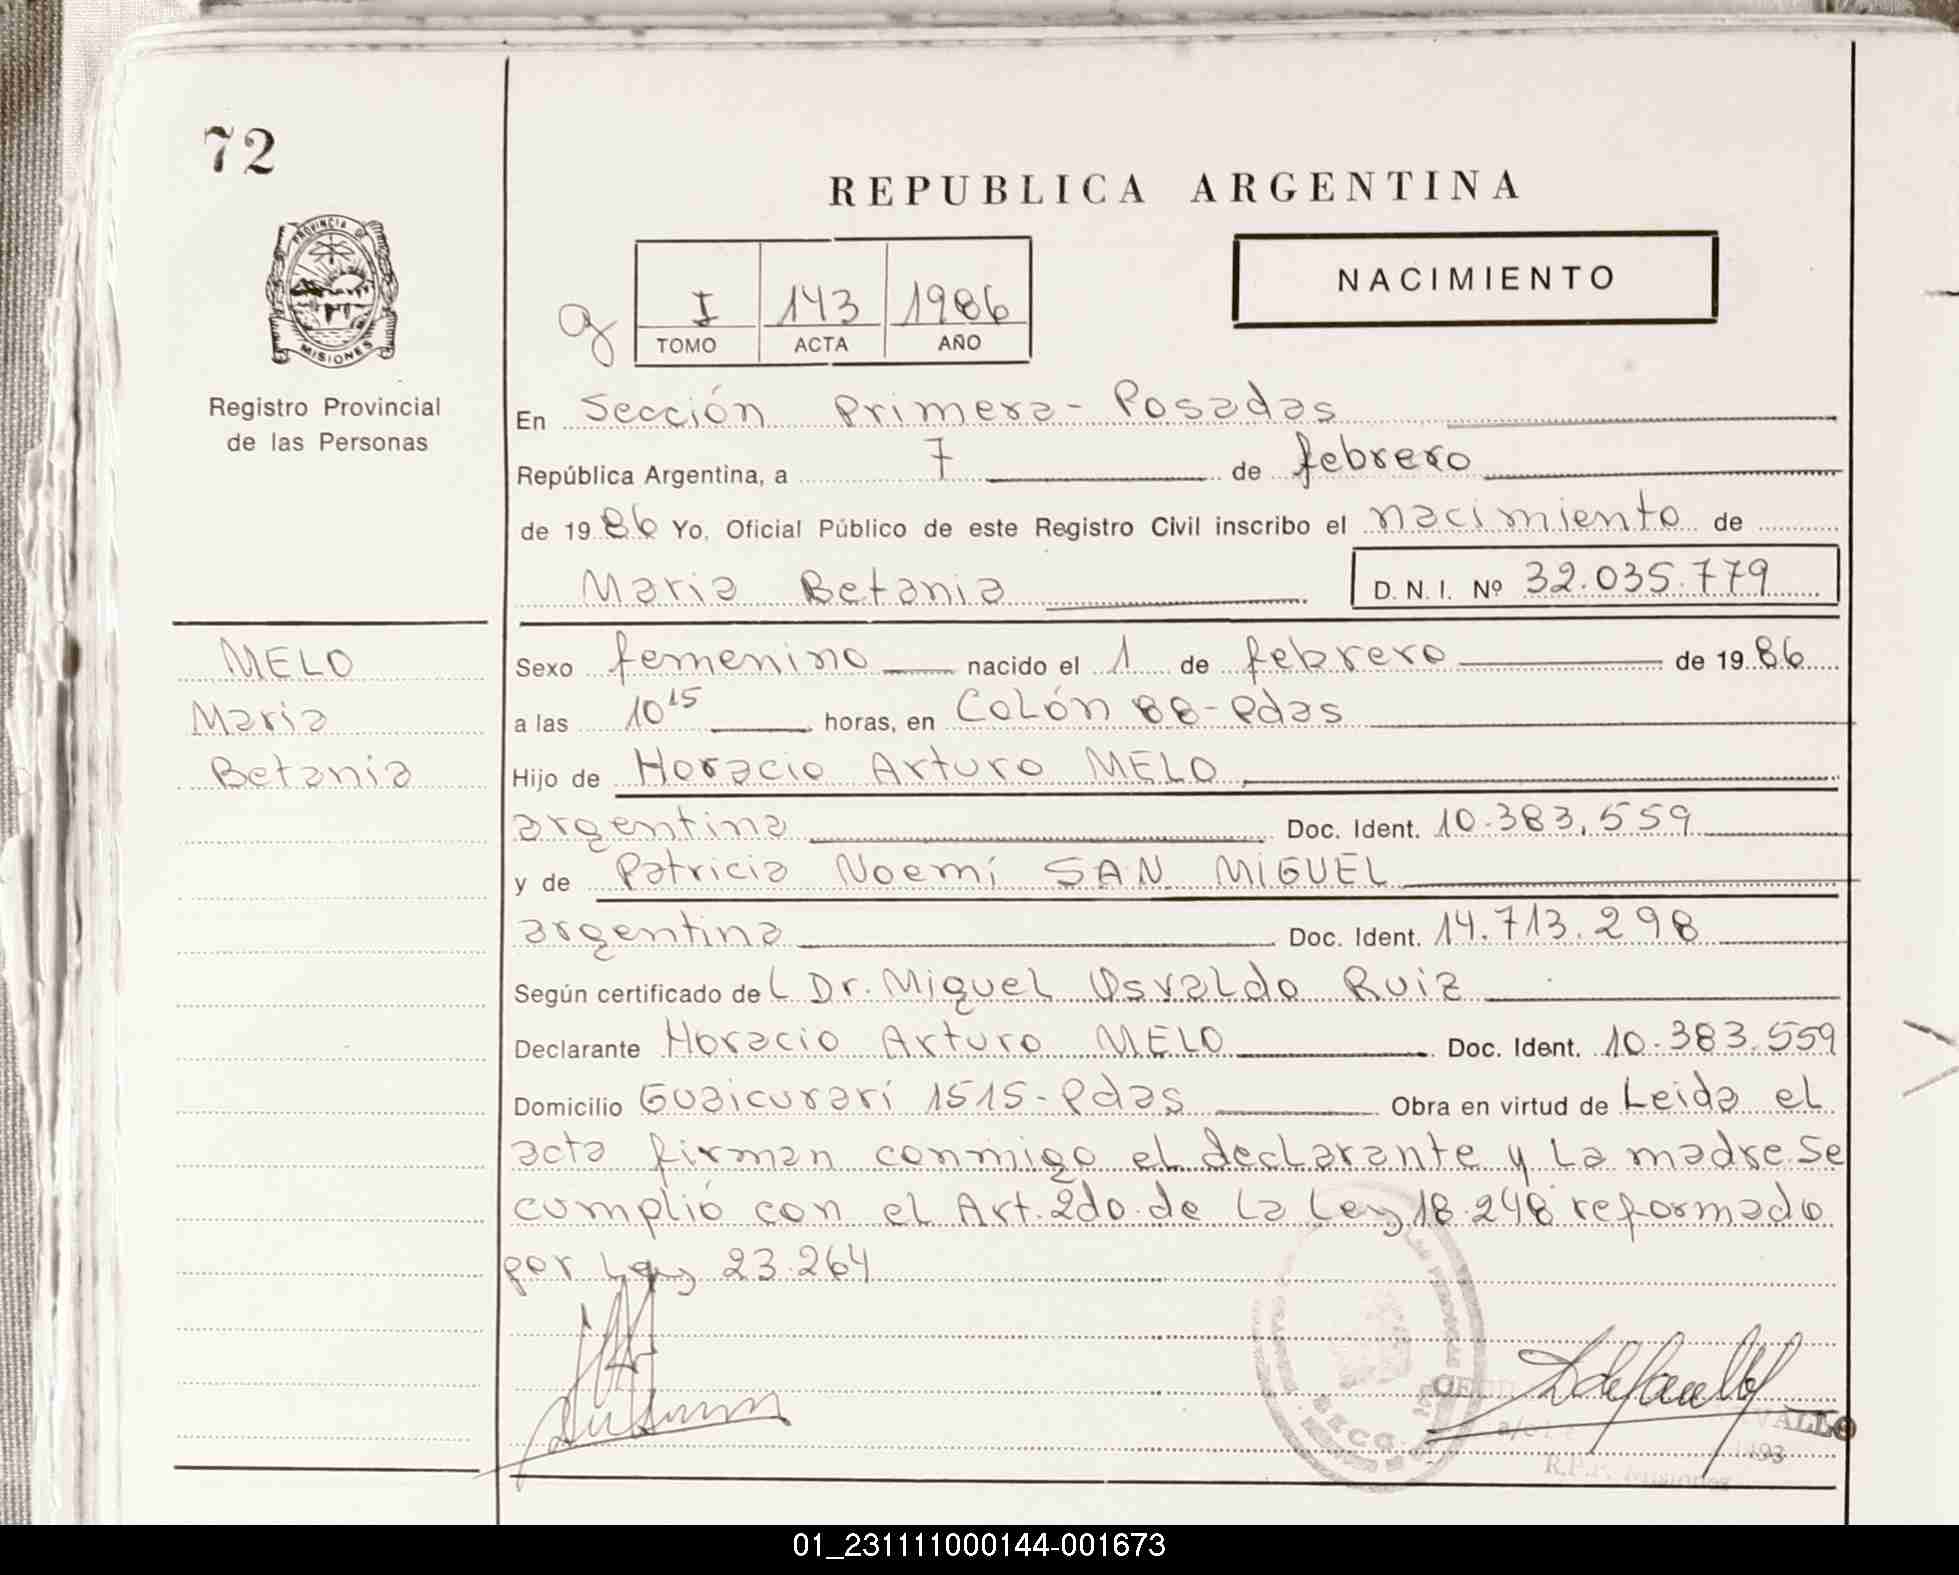 72
REPUBLICA ARGENTINA
PROVINCIA DE
MISIONES
Registro Provincial
de las Personas
I 143 1986
TOMO ACTA AÑO
NACIMIENTO
En Sección Primera - Posadas
República Argentina, a 7 de febrero
de 1986 Yo, Oficial Público de este Registro Civil inscribo el nacimiento de
Maria Betania D. N. I. Nº 32.035.779
MELO
Maria
Betania
Sexo femenino nacido el 1 de febrero de 1986
a las 10 15 horas, en Colón 88 - Pdas
Hijo de Horacio Arturo MELO
argentina Doc. Ident. 10.383.559
y de Patricia Noemí SAN MIGUEL
argentina Doc. Ident. 14.713.298
Según certificado del Dr. Miguel Osvaldo Ruiz
Declarante Horacio Arturo MELO Doc. Ident. 10.383.559
Domicilio Guaicurarí 1515 - Pdas Obra en virtud de Leida el
acta firman conmigo el declarante y la madre. Se
cumplió con el Art. 2do. de la Ley 18.248 reformado
por Ley 23.264
R.P.P. Misiones
01_231111000144-001673